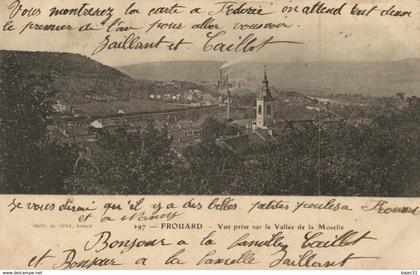 Vous montrerez la carte à Fedorie on attend tout deux
le premier de l'an pour aller vous voir.
Jaillant et Caillot
Je vous dirai qu'il y a des belles petites poules à Frouard
et à Nancy
PHOT. G. CUNY, NANCY
197 - FROUARD - Vue prise sur la Vallée de la Moselle
Bonjour à la famille Caillot
et Bonjour a la famille Jaillant
bajec51